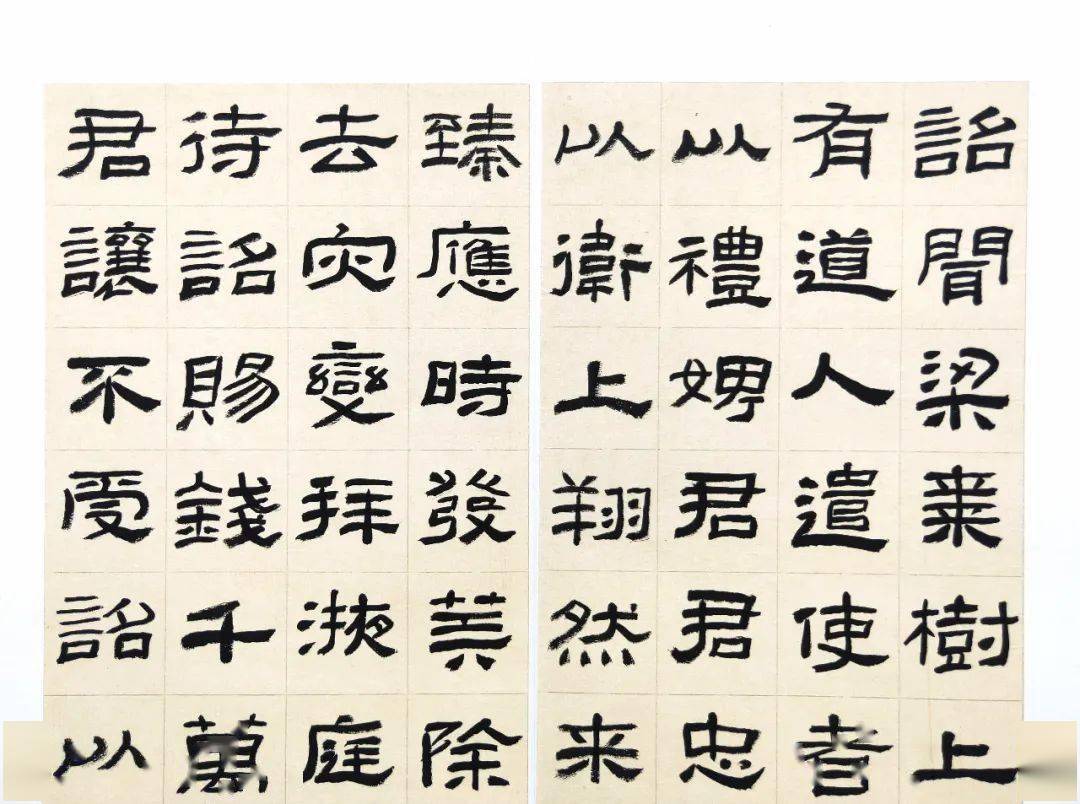 詔聞梁棗樹上
有道人遣使者
以禮娉君君忠
以衛上翔然来
臻應時發算除
去灾變拜液庭
待詔賜錢千萬
君讓不受詔以